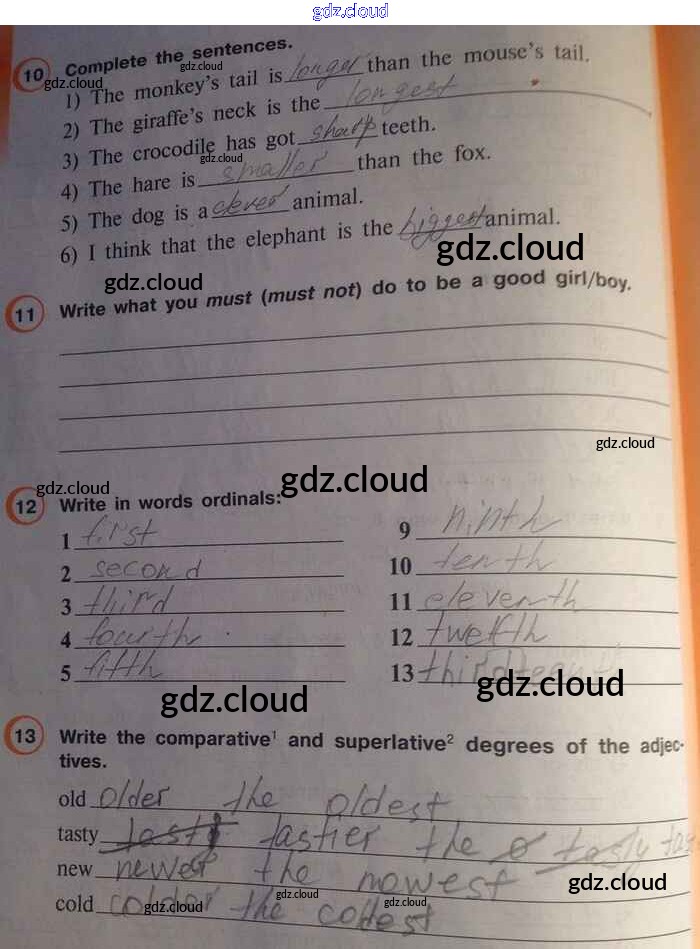 gdz.cloud
10 Complete the sentences.
gdz.cloud
gdz.cloud
1) The monkey's tail is longer than the mouse's tail.
2) The giraffe's neck is the longest
3) The crocodile has got sharp teeth.
gdz.cloud
4) The hare is smaller than the fox.
5) The dog is a clever animal.
6) I think that the elephant is the biggest animal.
gdz.cloud
gdz.cloud
11 Write what you must (must not) do to be a good girl/boy.
gdz.cloud
gdz.cloud
gdz.cloud
12 Write in words ordinals:
1 first
2 second
3 third
4 fourth
5 fifth
9 ninth
10 tenth
11 eleventh
12 twelfth
13
gdz.cloud
gdz.cloud
13 Write the comparative¹ and superlative² degrees of the adjec-
tives.
old older the oldest
tasty tastier the
new newer the newest
gdz.cloud
gdz.cloud
cold colder the coldest
gdz.cloud
gdz.cloud